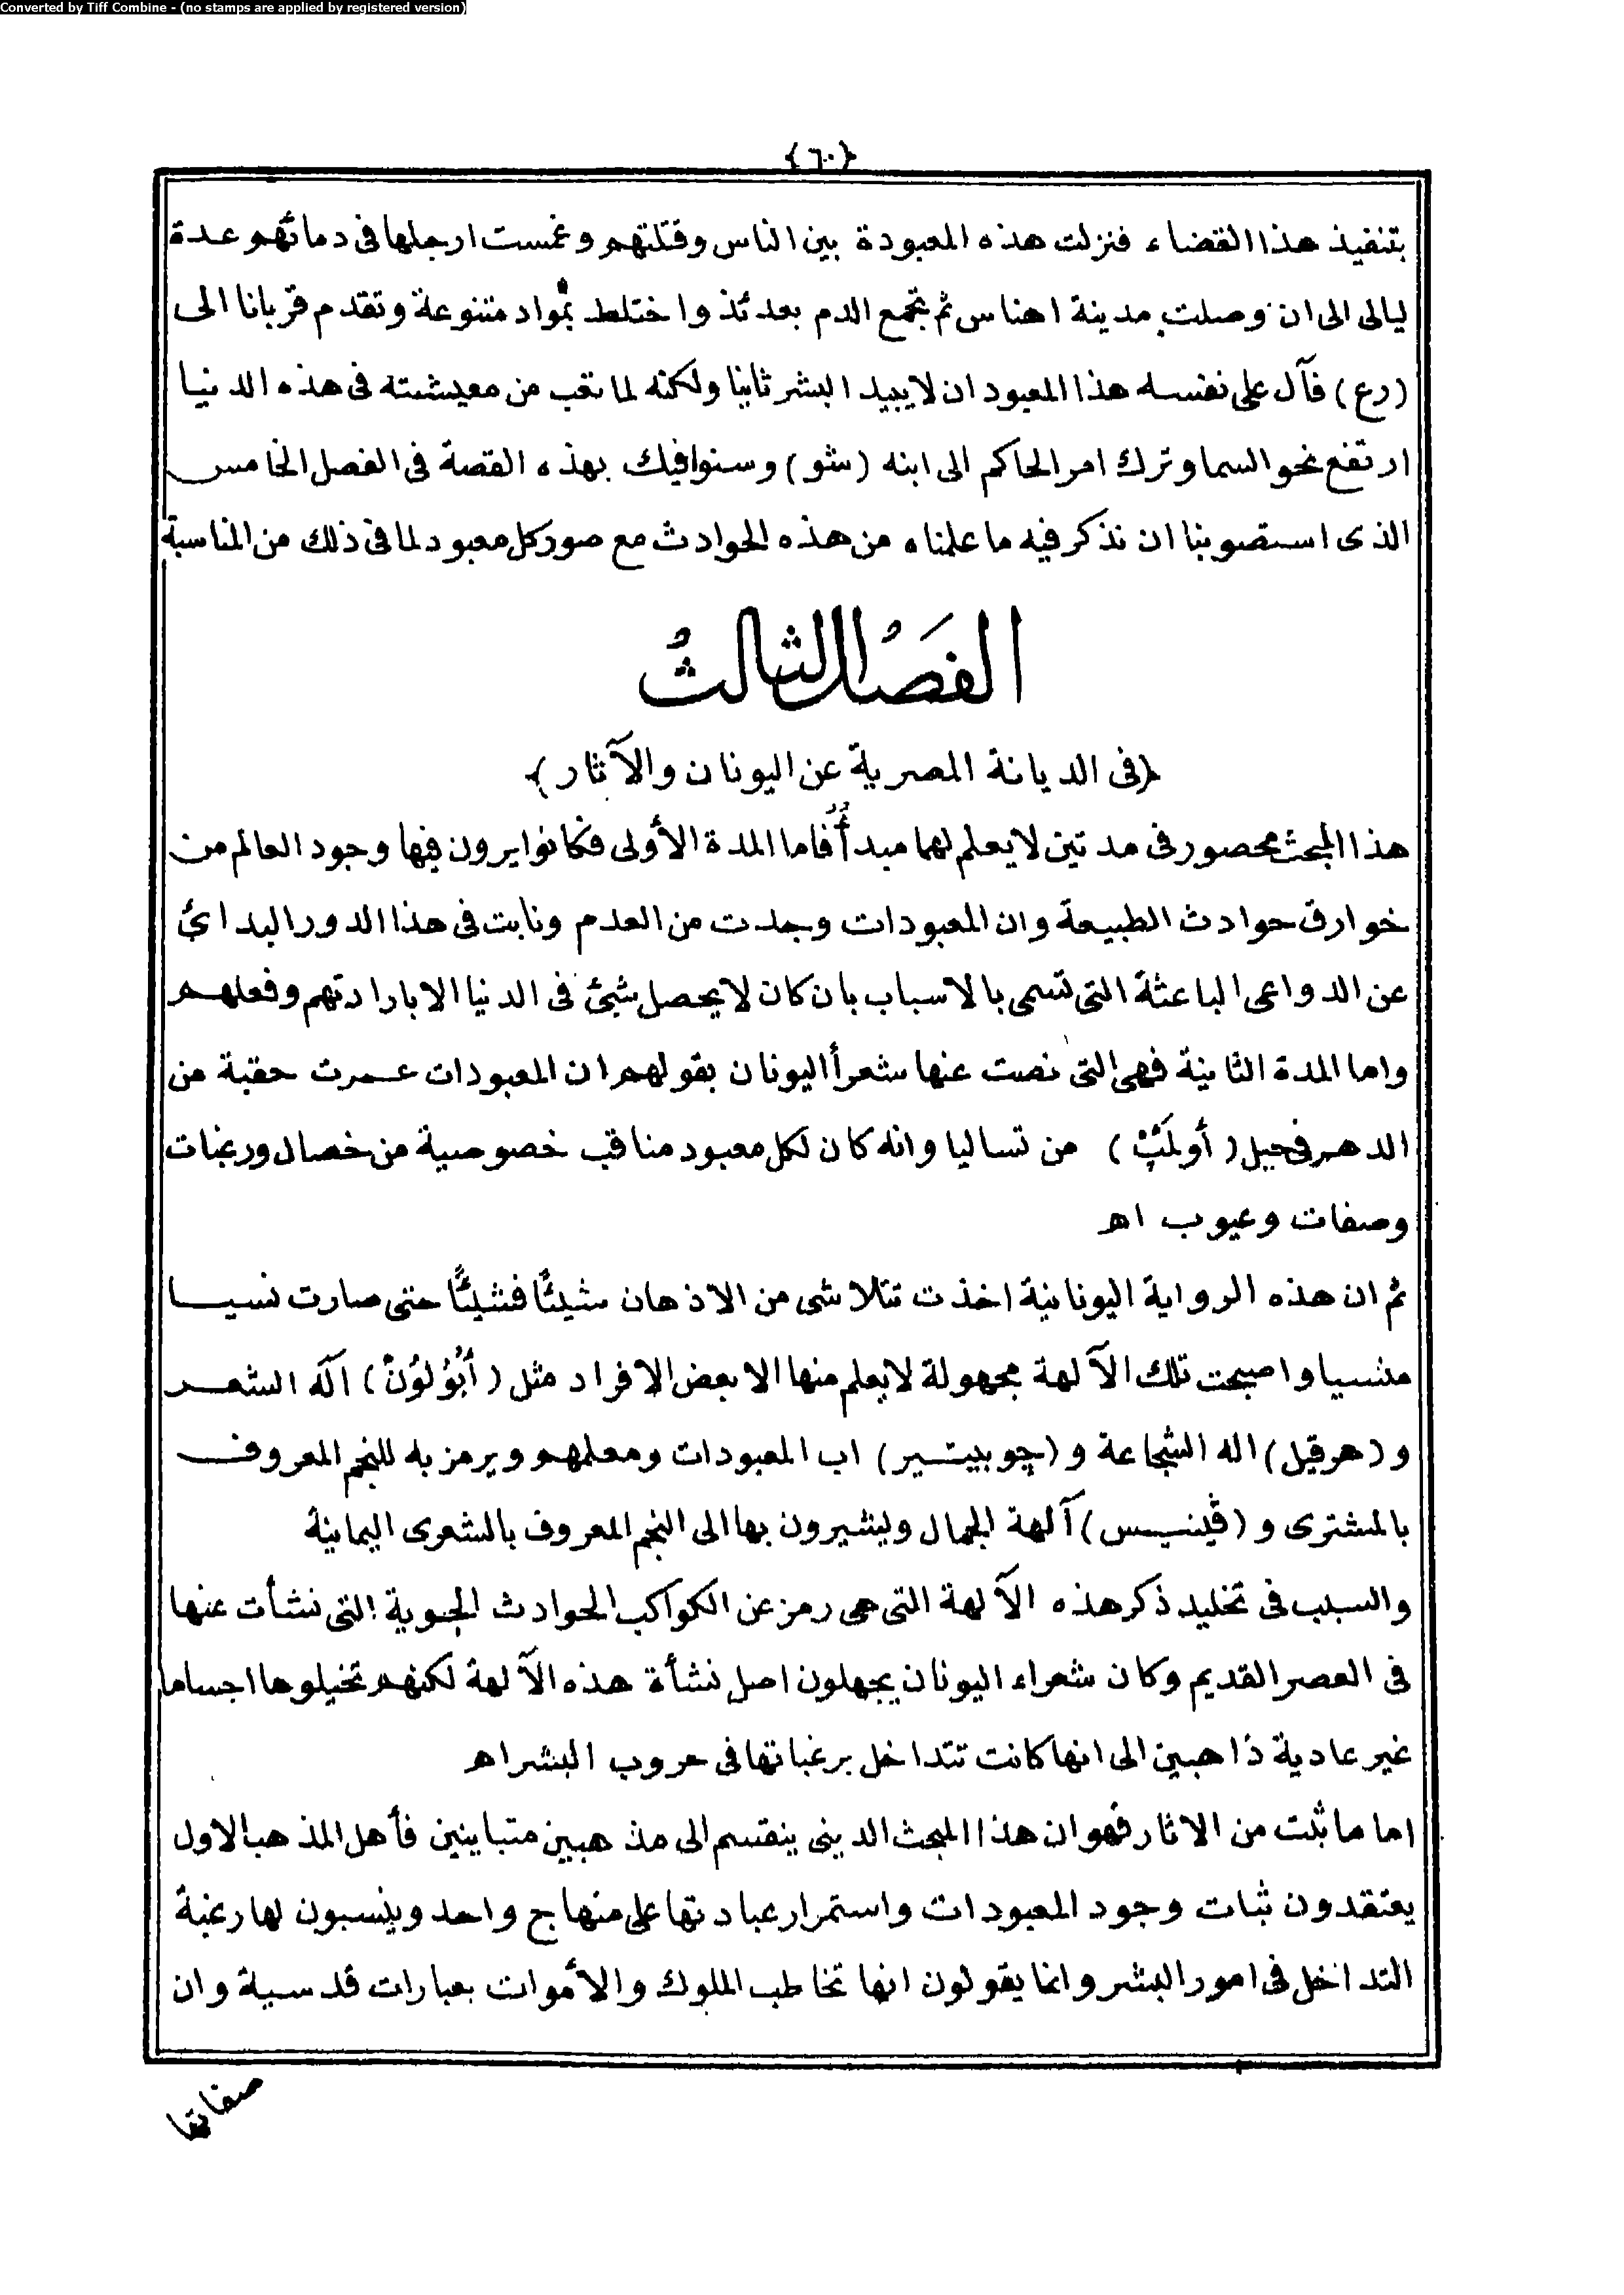 Converted by Tiff Combine - (no stamps are applied by registered version)
{٦٠}
بتنفيذ هذا القضاء فنزلت هذه المعبودة بين الناس وقتلتهم وغمست ارجلها فى دمائهم عدة
ليالى الى ان وصلت مدينة اهناس ثم تجمع الدم بعدئذ واختلط بمواد متنوعة وتقدم قربانا الى
(رع) فآل على نفسه هذا المعبود ان لا يبيد البشر ثانيا ولكنه لما تعب من معيشته فى هذه الدنيا
ارتفع نحو السما وترك امر الحاكم الى ابنه (شو) وسنوافيك بهذه القصة فى الفصل الخامس
الذى استصوبنا ان نذكر فيه ما علمناه من هذه الحوادث مع صور كل معبود لما فى ذلك من المناسبة
الفَصْلُ الثالثُ
{فى الديانة المصرية عن اليونان والآثار}
هذا المبحث محصور فى مدتين لا يعلم لهما مبدأٌ فاما المدة الأولى فكانوا يرون فيها وجود العالم من
خوارق حوادث الطبيعة وان المعبودات وجدت من العدم ونابت فى هذا الدور البدائ
عن الدواعى الباعثة التى تسمى بالاسباب بان كان لا يحصل شئ فى الدنيا الا بارادتهم وفعلهم
واما المدة الثانية فهى التى نصت عنها شعرأ اليونان بقولهم ان المعبودات عمرت حقبة من
الدهر فى جبل (أولَمْپْ) من تساليا وانه كان لكل معبود مناقب خصوصية من خصال ورغبات
وصفات وعيوب اه
ثم ان هذه الرواية اليونانية اخذت تتلاشى من الاذهان شيئًا فشيئًا حتى صارت نسيا
منسيا واصبحت تلك الآلهة مجهولة لا يعلم منها الا بعض الافراد مثل (أَبُوْلوُنْ) آله الشعر
و (هرقيل) اله الشجاعة و (چوبيتير) اب المعبودات ومعلمهم ويرمز به للنجم المعروف
بالمشترى و (ڤينيس) آلهة الجمال ويشيرون بها الى النجم المعروف بالشعرى اليمانية
والسبب فى تخليد ذكر هذه الآلهة التى هى رمز عن الكواكب الحوادث الجوية التى نشأت عنها
فى العصر القديم وكان شعراء اليونان يجهلون اصل نشأة هذه الآلهة لكنهم تخيلوها اجساما
غير عادية ذاهبين الى انها كانت تتداخل برغباتها فى حروب البشر اه
اما ما ثبت من الاثار فهو ان هذا المبحث الدينى ينقسم الى مذهبين متباينين فأهل المذهب الاول
يعتقدون ثبات وجود المعبودات واستمرار عبادتها على منهاج واحد وينسبون لها رغبة
التداخل فى امور البشر وانما يقولون انها تخاطب الملوك والأموات بعبارات قدسية وان
صفاتها